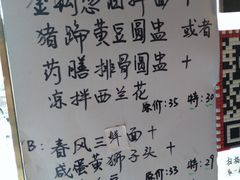 金钩葱油拌面+
猪蹄黄豆圆盅 或者
药膳排骨圆盅 +
凉拌西兰花
原价:35 特:30
B:春风三鲜面+
咸蛋黄狮子头+
原价:33 特:29